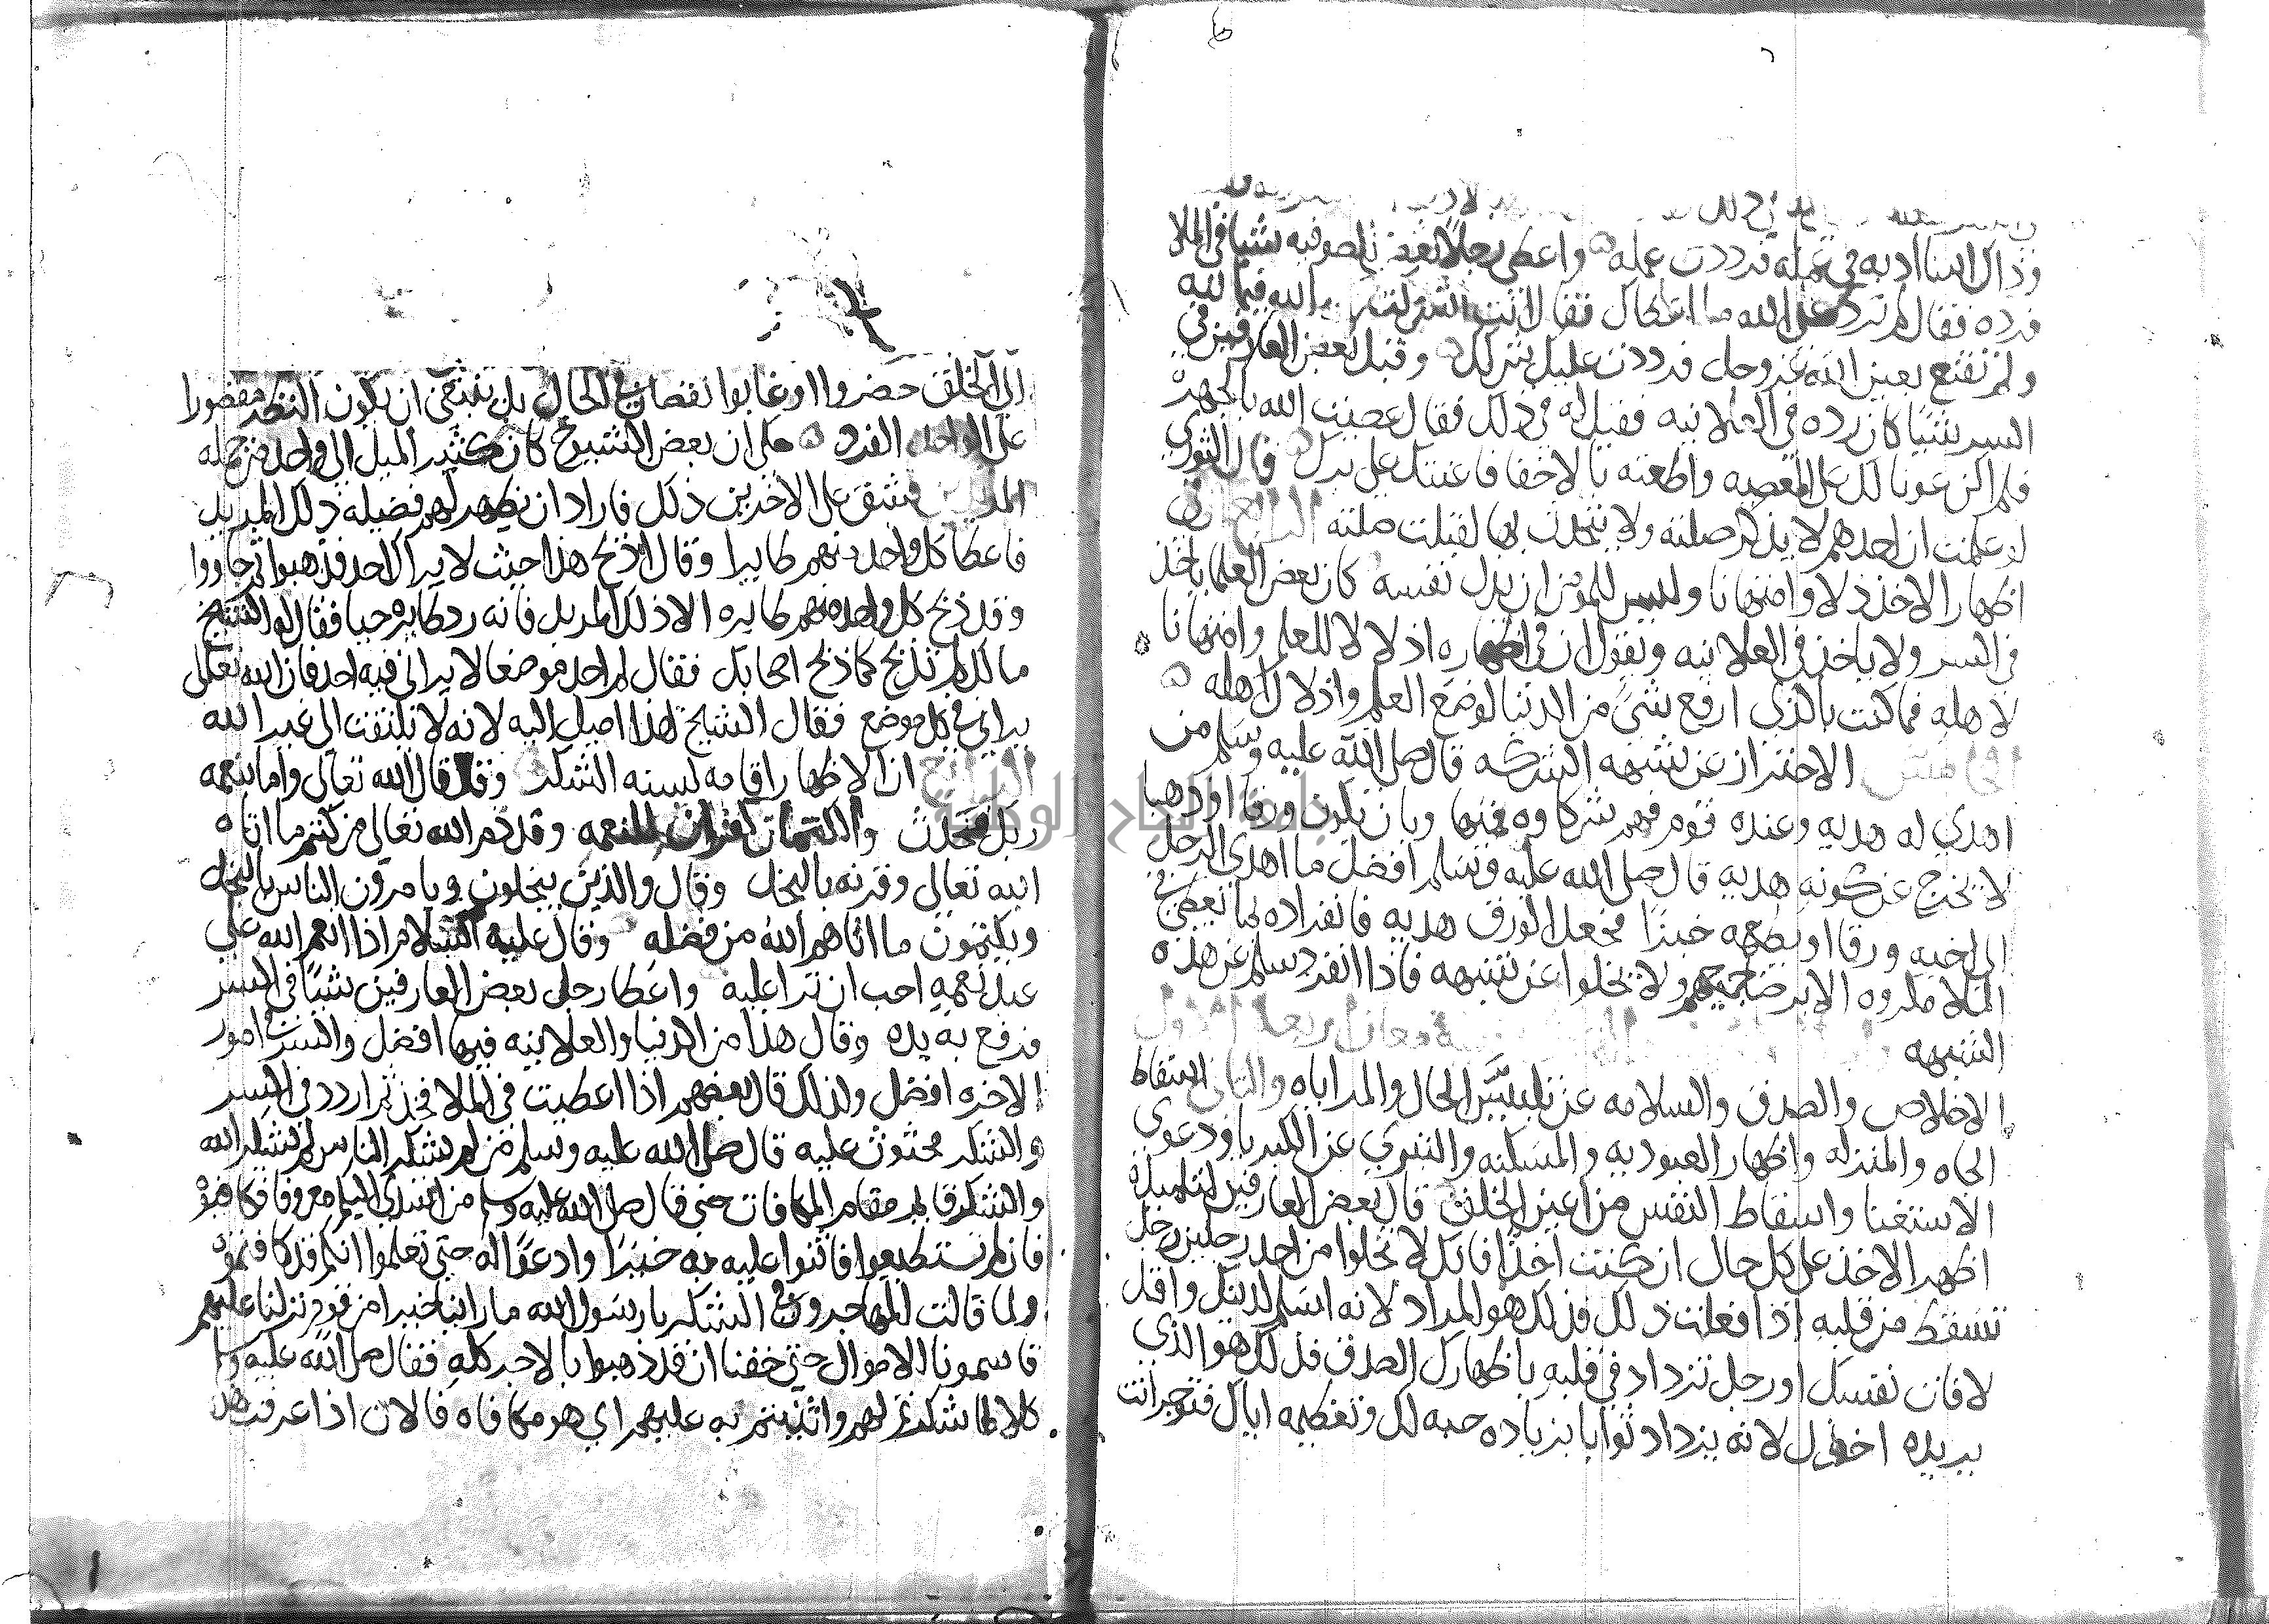 وذاك اسا ادبه في عمله فرددت عمله واعطى رجلا لبعض الصوفيه شيا في الملا
فرده فقال لم ترد على الله ما اعطاك فقال انت اشركت الله فيما لله
ولم تقنع بعين الله عز وجل فرددت عليك شركك وقبل بعض العارفين في
السر شيا كان رده في العلانيه فقيل له في ذلك فقال عصيت الله بالجهر
فلم اكن عونا لك على المعصيه واطعته بالاخفا فاعنتك على برك قال الثوري
لو علمت ان احدهم لا يذكر صلته ولا يتحدث بها لقبلت صلته الرابع ان في
اظهار الاخذ ذلا وامتهانا وليس للمومن ان يذل نفسه كان بعض العلما ياخذ
في السر ولا ياخذ في العلانيه ويقول ان في اظهاره اذلالا للعلم وامتهانا
لاهله فما كنت بالذي ارفع شيا من الدنيا لوضع العلم واذلال اهله
الخامس الاحتراز عن شبهه الشركه قال صلى الله عليه وسلم من
اهدي له هديه وعنده قوم فهم شركاوه فيها وبان تكون ورقا او ذهبا
لا يخرج عن كونه هديه قال صلى الله عليه وسلم افضل ما اهدى الرجل
الى اخيه ورقا او يطعمه خبزا فجعل الورق هديه فانفراده بما يعطى في
الملا مكروه الا برضى جميعهم ولا يخلوا عن شبهه فاذا انفرد سلم عن هذه
الشبهه
الاخلاص والصدق والسلامه عن تلبيس الحال والمراياه والثاني اسقاط
الجاه والمنزله واظهار العبوديه والمسكنه والتبري عن الكبريا ودعوى
الاستغنا واسقاط النفس من اعين الخلق قال بعض العارفين لتلميذه
اظهر الاخذ على كل حال ان كنت اخذا فانك لا تخلوا من احد رجلين رجل
تسقط من قلبه اذا فعلت ذلك فذلك هو المراد لانه اسلم لدينك واقل
لافات نفسك او رجل تزداد في قلبه باظهارك الصدق فذلك هو الذي
يريده اخوك لانه يزداد ثوابا بزياده حبه لك وتعظيمه اياك فتوجر انت
الى الخلق حضروا او غابوا نقصان في الحال بل ينبغي ان يكون النظر مقصورا
على الواحد الفرد حكي ان بعض الشيوخ كان كثير الميل الى واحد من جمله
المريدين فشق على الاخرين ذلك فاراد ان يظهر لهم فضيله ذلك المريد
فاعطا كل واحد منهم طايرا وقال اذبح هذا حيث لا يراك احد فذهبوا ثم جاووا
وقد ذبح كل واحد منهم طايره الا ذلك المريد فانه رد طايره حيا فقال له الشيخ
ما لك لم تذبح كما ذبح اصحابك فقال لم اجد موضعا لا يراني فيه احد فان الله تعالى
يراني في كل موضع فقال الشيخ لهذا اميل اليه لانه لا يلتفت الى غير الله
الرابع ان الاظهار اقامه لسنه الشكر وقد قال الله تعالى واما بنعمه
ربك فحدث والكتمان كفران للنعمه وقد ذم الله تعالى من كتم ما اتاه
الله تعالى وقرنه بالبخل وقال والذين يبخلون ويامرون الناس بالبخل
ويكتمون ما اتاهم الله من فضله وقال عليه السلام اذا انعم الله على
عبد نعمه احب ان ترا عليه واعطا رجل بعض العارفين شيا في السر
فرفع به يده وقال هذا من الدنيا والعلانيه فيها افضل والسر في امور
الاخره افضل ولذلك قال بعضهم اذا اعطيت في الملا فخذ ثم اردد في السر
والشكر محثوث عليه قال صلى الله عليه وسلم من لم يشكر الناس لم يشكر الله
والشكر قايم مقام المكافات حتى قال صلى الله عليه وسلم من اسدي اليكم معروفا فكافيوه
فان لم تستطيعوا فاثنوا عليه به خيرا وادعوا له حتى تعلموا انكم قد كافيتموه
ولما قالت المهاجرون في الشكر يا رسول الله ما راينا خيرا من قوم نزلنا عليهم
قاسمونا الاموال حتى خفنا ان قد ذهبوا بالاجر كله فقال صلى الله عليه وسلم
كلا لما شكرتم لهم واثنيتم به عليهم اي هو مكافاه فالان اذا عرفت هذا